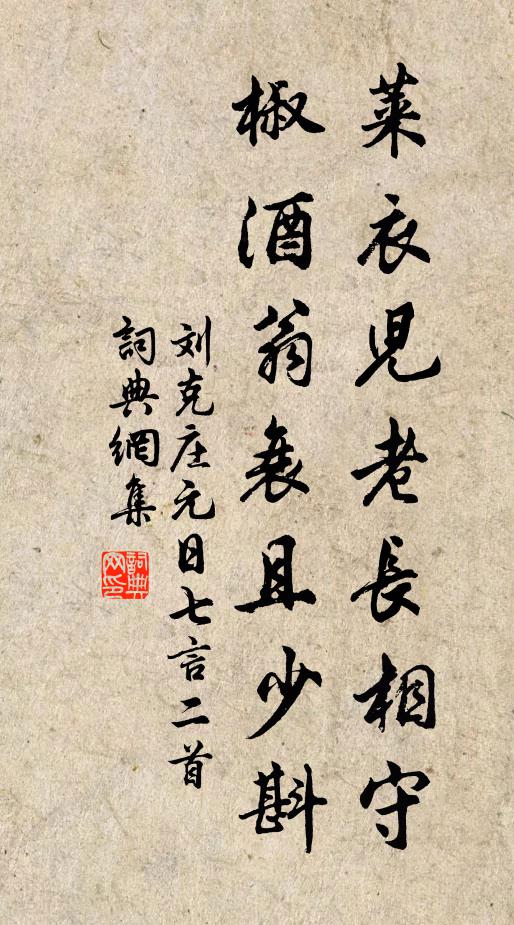 莱衣児老長相守
椒酒翁衰且少斟
刘克庄元日七言二首
詞典網集
詞典网印